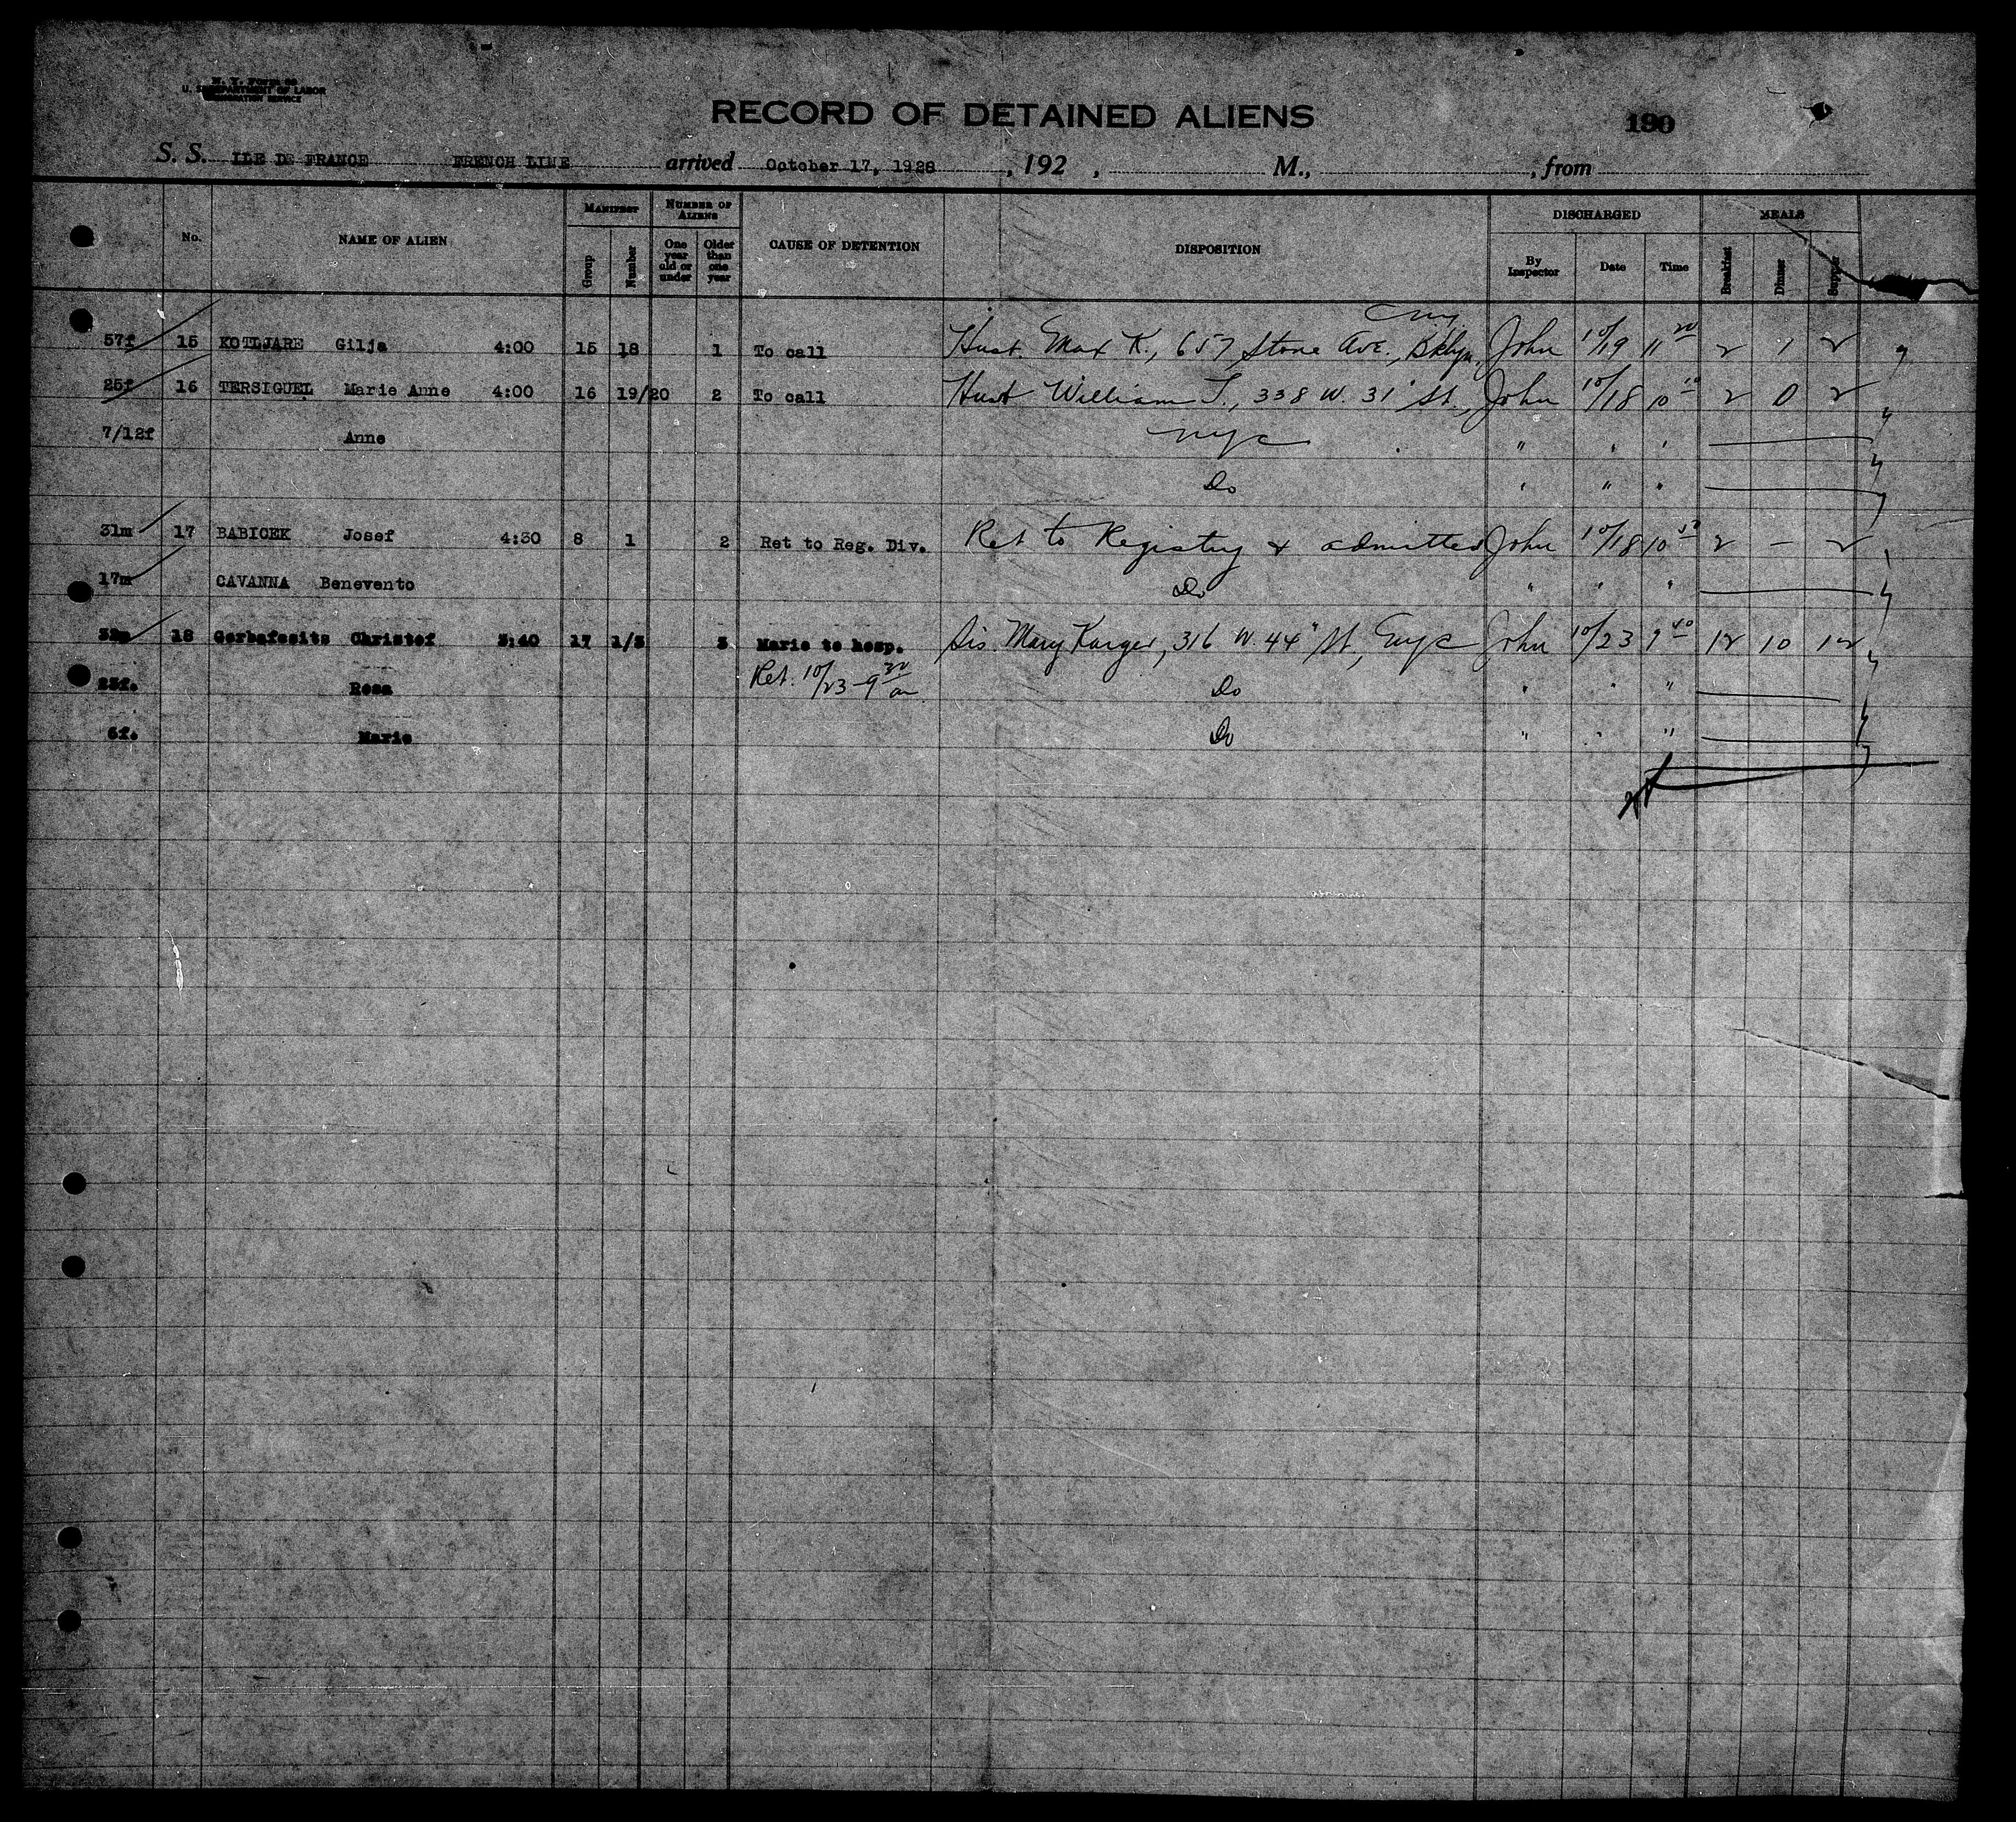 N. Y. Form 90
U. S. DEPARTMENT OF LABOR
IMMIGRATION SERVICE
RECORD OF DETAINED ALIENS 190
S. S. ILE DE FRANCE FRENCH LINE arrived October 17, 1928, 192 , M., , from
No. NAME OF ALIEN MANIFEST Group Number NUMBER OF ALIENS One year old or under Older than one year CAUSE OF DETENTION DISPOSITION DISCHARGED By Inspector Date Time MEALS Breakfast Dinner Supper
57f 15 KOTLJARE Gilja 4:00 15 18 1 To call Husb. Max K., 657 Stone Ave., Bklyn, John 10/19 11 20 2 1 2
25f 16 TERSIGUEL Marie Anne 4:00 16 19/20 2 To call Husb William T., 338 W. 31" St., John 10/18 10 10 2 0 2
7/12f Anne nyc " " "
Do " " "
31m 17 BABICEK Josef 4:30 8 1 2 Ret to Reg. Div. Ret to Registry & admitted John 10/18 10 2 - 2
17m CAVANNA Benevento Do " " "
18 Gerbafesits Christef 3:40 17 1/3 3 Marie to hosp. Sis Mary Karger, 316 W. 44" St, nyc John 10/23 9 40 12 10 12
23f. Rosa Ret. 10/23 - 9 30 am Do " " "
6f. Marie Do " " "